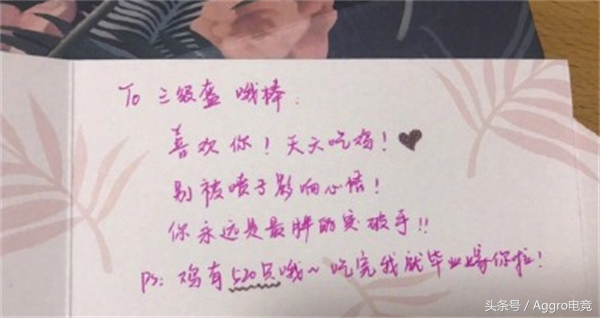 To 三级盔 哦棒:
喜欢你！天天吃鸡！♥
别被喷子影响心情！
你永远是最胖的突破手!!
Ps: 鸡有520只哦~吃完我就毕业嫁你啦！
头条号 / Aggro电竞